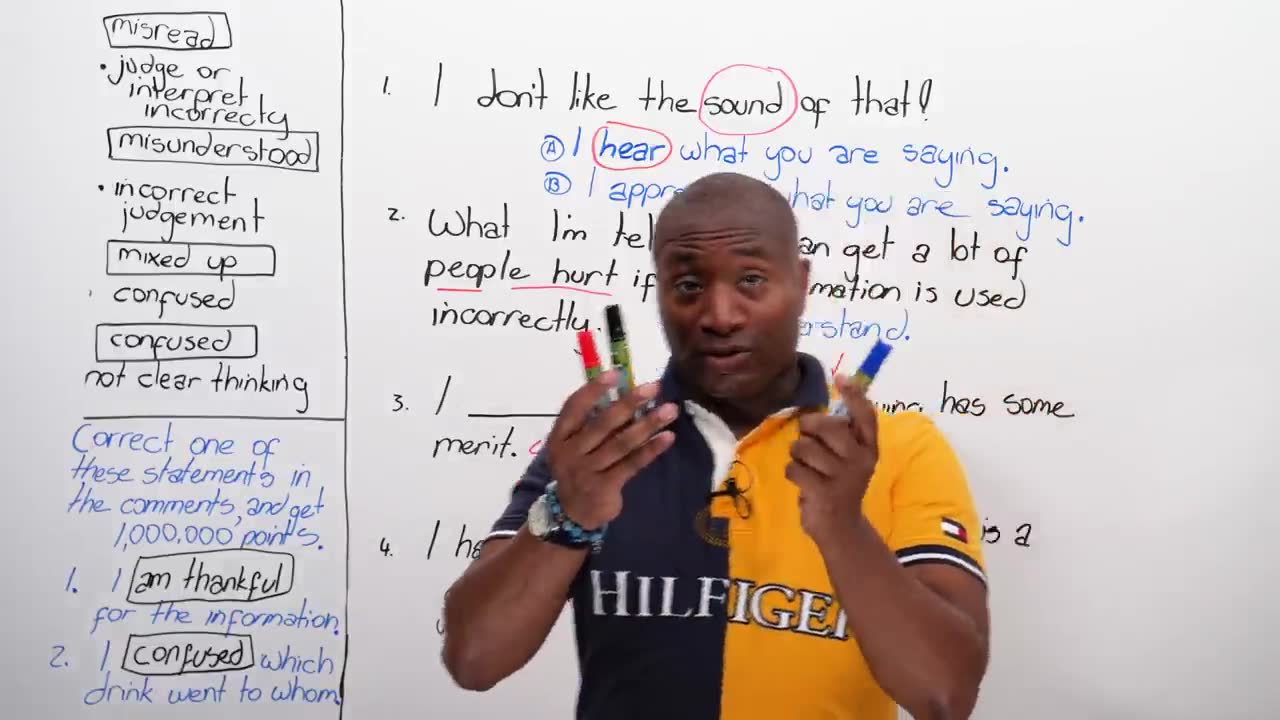 misread
• judge or
interpret
incorrecty
misunderstood
• incorrect
judgement
mixed up
confused
confused
not clear thinking
Correct one of
these statements in
the comments, and get
1,000,000 points.
1. I am thankful
for the information.
2. I confused which
drink went to whom.
1. I don't like the sound of that!
Ⓐ I hear what you are saying.
Ⓑ I what you are saying.
2. What I'm get a lot of
people hurt if is used
incorrectly.
3. I has some
merit.
4. I is a
HILFIGER